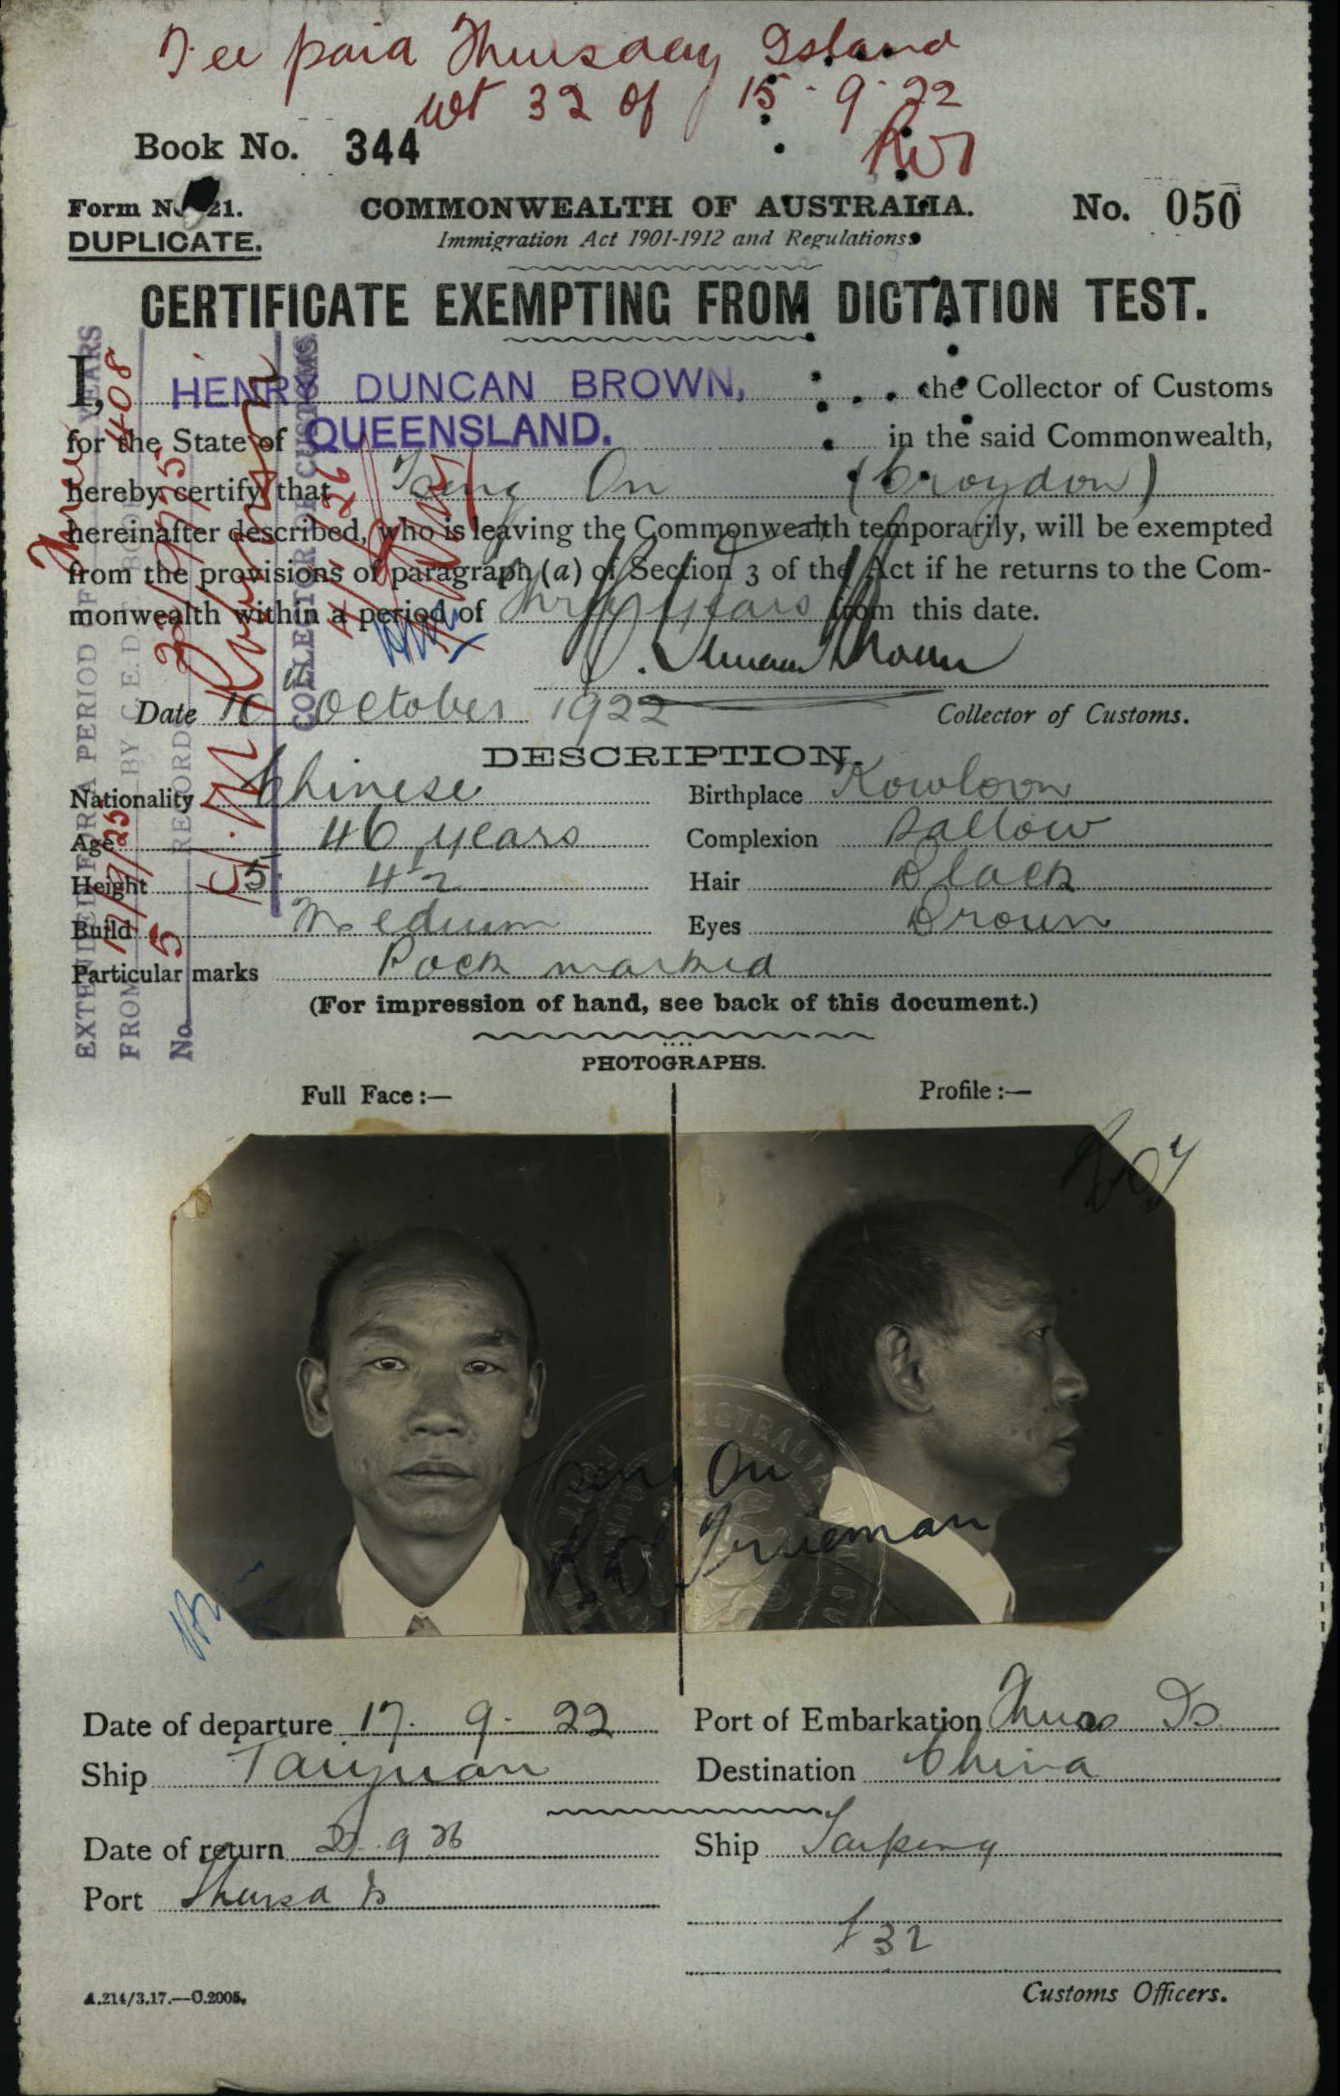 Fee paid Thursday Island
Wt 32 of 15.9.22
Book No. 344
Form No 21.
DUPLICATE.
COMMONWEALTH OF AUSTRALIA.
No. 050
Immigration Act 1901-1912 and Regulations.
CERTIFICATE EXEMPTING FROM DICTATION TEST.
I, HENRY DUNCAN BROWN, the Collector of Customs
for the State of QUEENSLAND. in the said Commonwealth,
hereby certify that Tseng On (Croydon)
hereinafter described, who is leaving the Commonwealth temporarily, will be exempted
from the provisions of paragraph (a) of Section 3 of the Act if he returns to the Com-
monwealth within a period of Three years from this date.
H. Duncan Brown
Date 10th October 1922
Collector of Customs.
EXTENDED FOR A PERIOD OF Three YEARS
FROM 17/9/25 BY C.E.D. BOOK 408
No 5 RECORD 23/9/25
COLLECTOR OF CUSTOMS
DESCRIPTION.
Nationality Chinese
Birthplace Kowloon
Age 46 years
Complexion Sallow
Height 5 4½
Hair Black
Build Medium
Eyes Brown
Particular marks Pock marked
(For impression of hand, see back of this document.)
PHOTOGRAPHS.
Full Face:—
Profile:—
On
Trueman
Date of departure 17. 9. 22
Port of Embarkation Thurs Is
Ship Taiyuan
Destination China
Date of return 21.9 26
Ship Taiping
Port Thursd Is
132
A.214/3.17.—C.2005.
Customs Officers.